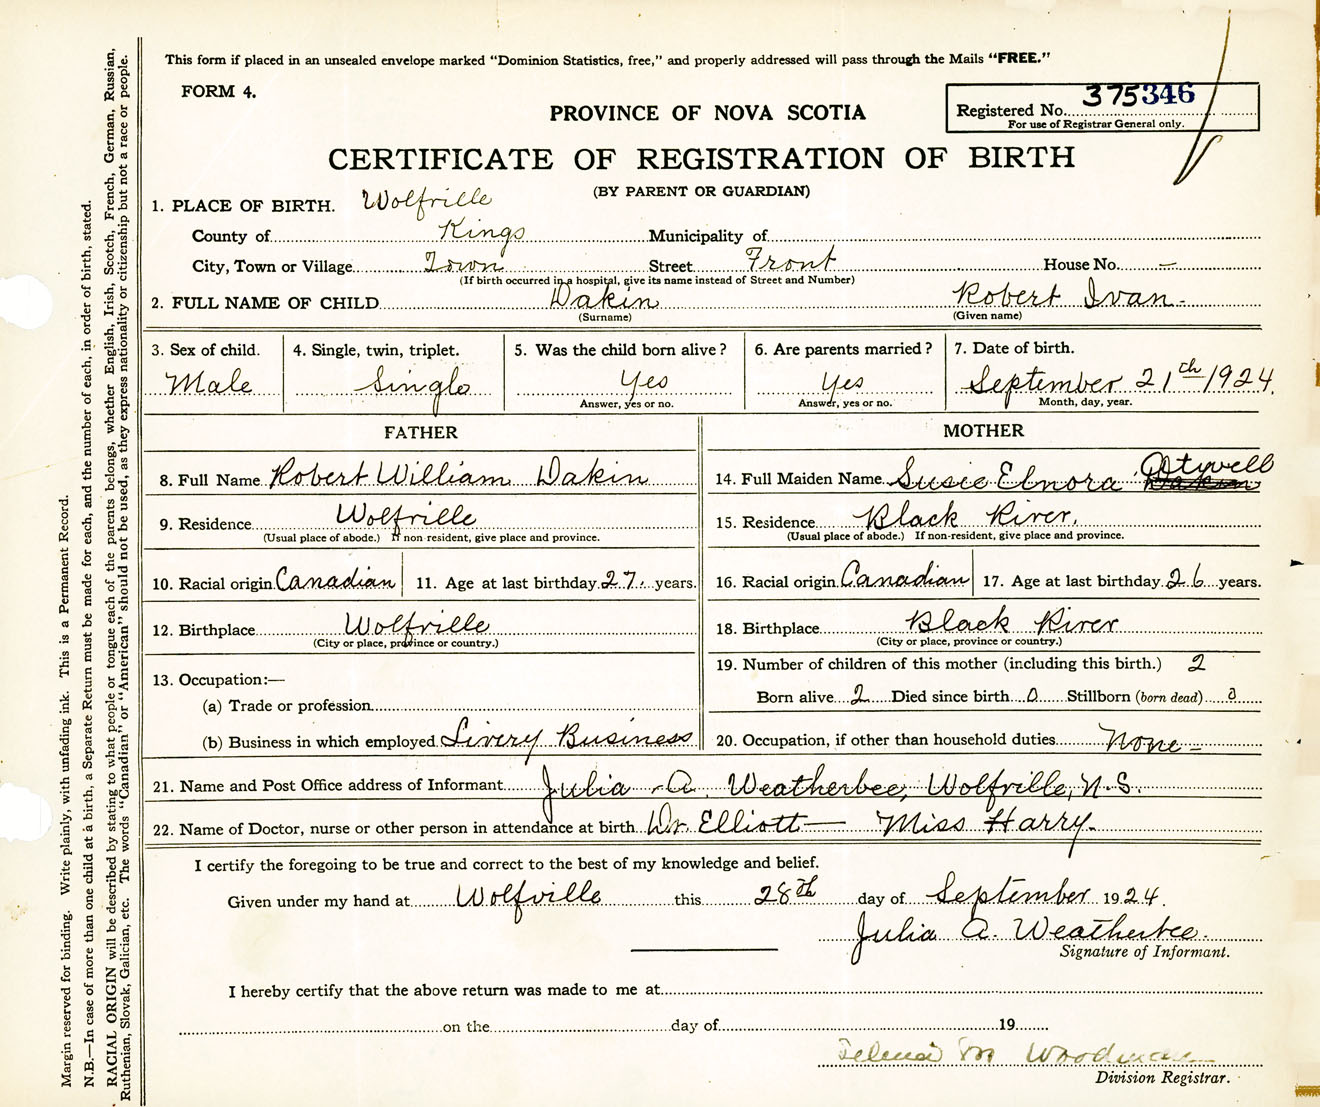 This form if placed in an unsealed envelope marked "Dominion Statistics, free," and properly addressed will pass through the Mails "FREE."
FORM 4.
PROVINCE OF NOVA SCOTIA
Registered No. 375346
For use of Registrar General only.
CERTIFICATE OF REGISTRATION OF BIRTH
(BY PARENT OR GUARDIAN)
1. PLACE OF BIRTH. Wolfville
County of Kings Municipality of
City, Town or Village Town Street Front House No. —
(If birth occurred in a hospital, give its name instead of Street and Number)
2. FULL NAME OF CHILD Dakin Robert Ivan -
(Surname) (Given name)
3. Sex of child. 4. Single, twin, triplet. 5. Was the child born alive? 6. Are parents married? 7. Date of birth.
Male Single Yes Yes September 21th 1924
Answer, yes or no. Answer, yes or no. Month, day, year.
FATHER MOTHER
8. Full Name Robert William Dakin 14. Full Maiden Name Susie Elnora
9. Residence Wolfville 15. Residence Black River.
(Usual place of abode.) If non-resident, give place and province. (Usual place of abode.) If non-resident, give place and province.
10. Racial origin Canadian 11. Age at last birthday 27 years. 16. Racial origin Canadian 17. Age at last birthday 26 years.
12. Birthplace Wolfville 18. Birthplace Black River
(City or place, province or country.) (City or place, province or country.)
13. Occupation:— 19. Number of children of this mother (including this birth.) 2
(a) Trade or profession Born alive 2 Died since birth 0 Stillborn (born dead) 0
(b) Business in which employed Livery Business 20. Occupation, if other than household duties None -
21. Name and Post Office address of Informant Julia A. Weatherbee, Wolfville, N.S.
22. Name of Doctor, nurse or other person in attendance at birth Dr. Elliott — Miss Harry.
I certify the foregoing to be true and correct to the best of my knowledge and belief.
Given under my hand at Wolfville this 28th day of September 1924.
Julia A. Weatherbee.
Signature of Informant.
I hereby certify that the above return was made to me at
on the day of 19
M Woodman
Division Registrar.
Margin reserved for binding. Write plainly, with unfading ink. This is a Permanent Record.
N.B.—In case of more than one child at a birth, a Separate Return must be made for each, and the number of each, in order of birth, stated.
RACIAL ORIGIN will be described by stating to what people or tongue each of the parents belongs, whether English, Irish, Scotch, French, German, Russian,
Ruthenian, Slovak, Galician, etc. The words "Canadian" or "American" should not be used, as they express nationality or citizenship but not a race or people.